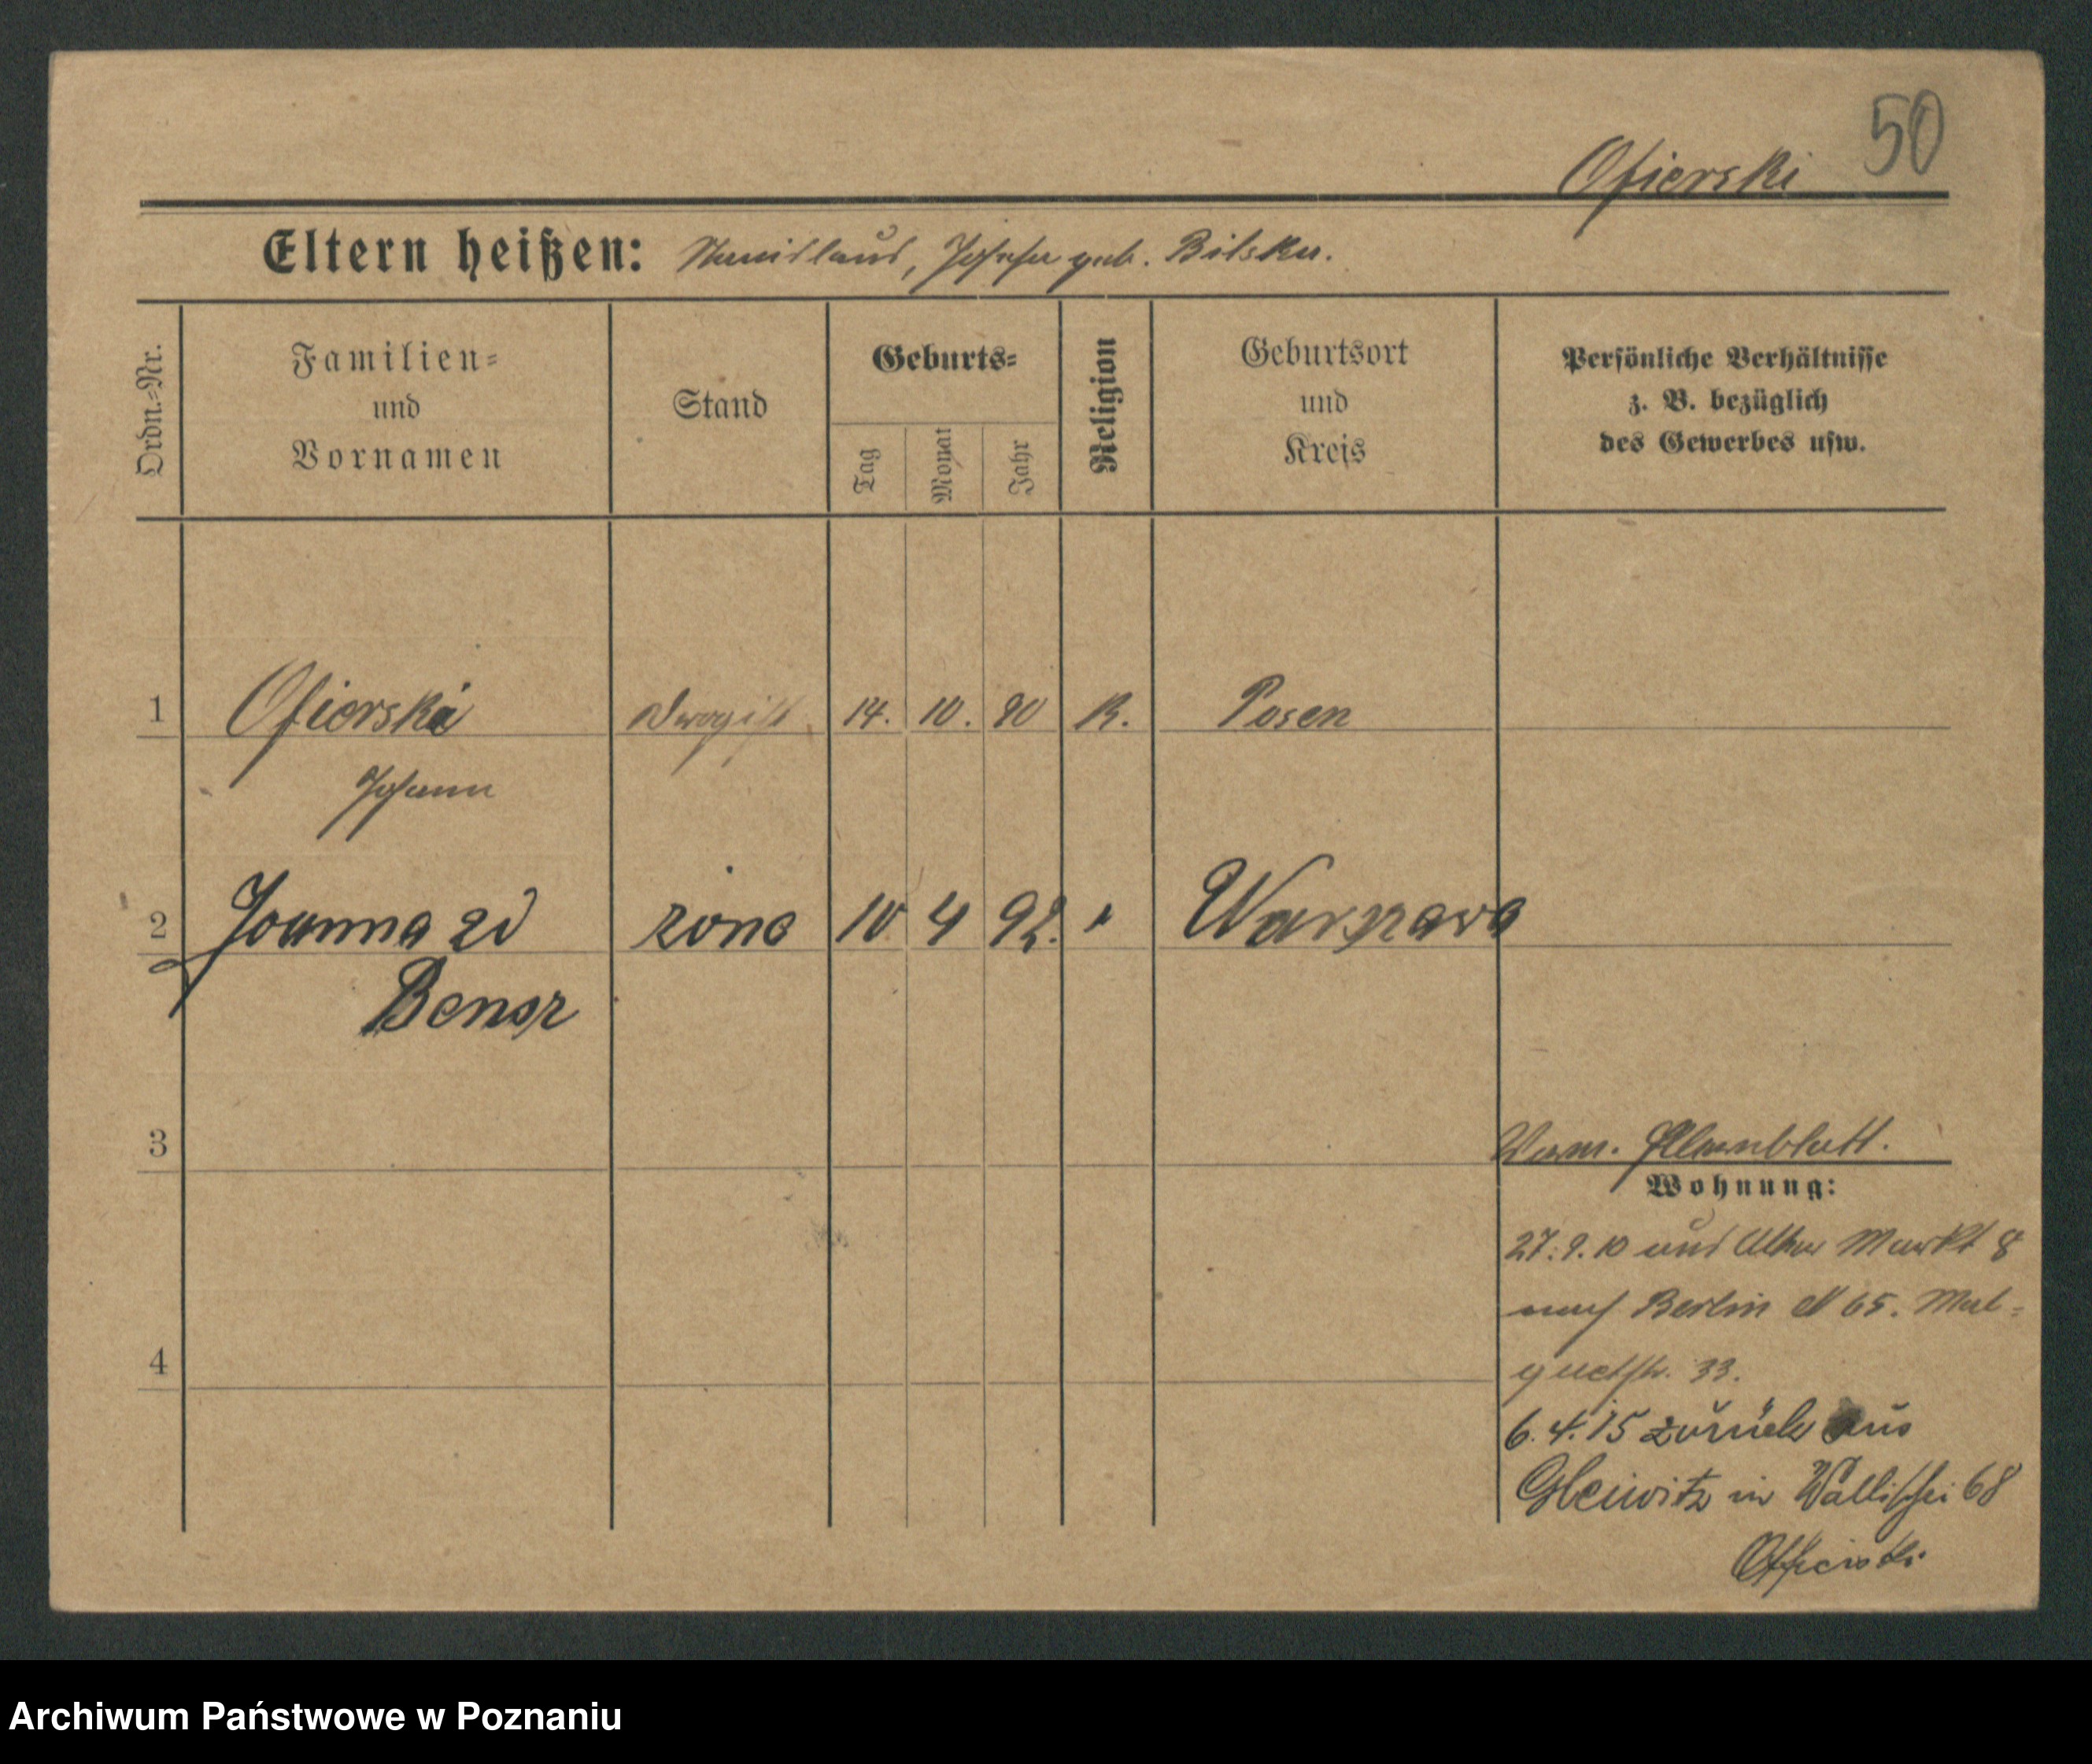 50
Ofierski
Eltern heißen: Stanislaus, Josefa geb. Bilska.
Ordn.-Nr.
Familien- und Vornamen
Stand
Geburts-
Tag
Monat
Jahr
Religion
Geburtsort und Kreis
Persönliche Verhältnisse
z. B. bezüglich
des Gewerbes usw.
1 Ofierski Drogist 14. 10. 90 K. Posen
Johann
2 Joanna zd żona 10 4 92. " Warszawa
Bensz
3
Vorm. Elternblatt.
Wohnung:
27.9.10 aus Alter Markt 8
nach Berlin N 65. Mal-
4
33.
6.4.15 zurück aus
Gleiwitz in Wallischei 68
Archiwum Państwowe w Poznaniu